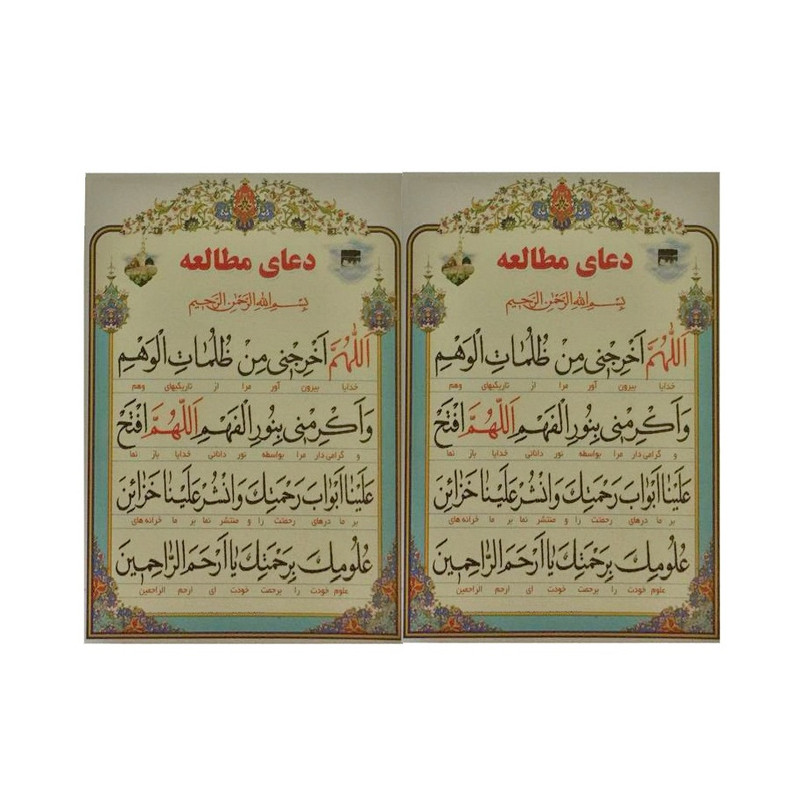 دعای مطالعه
بِسْمِ اللهِ الرَّحْمٰنِ الرَّحِيمِ
اَللّٰهُمَّ اَخْرِجْنِي مِنْ ظُلُمَاتِ الْوَهْمِ
خدایا بیرون آور مرا از تاریکیهای وهم
وَاَكْرِمْنِي بِنُورِ الْفَهْمِ اَللّٰهُمَّ افْتَحْ
و گرامی دار مرا بواسطه نور دانائی خدایا باز نما
عَلَيْنَا اَبْوَابَ رَحْمَتِكَ وَانْشُرْ عَلَيْنَا خَزَائِنَ
بر ما درهای رحمتت را و منتشر نما بر ما خزانه های
عُلُومِكَ بِرَحْمَتِكَ يَا اَرْحَمَ الرَّاحِمِينَ
علوم خودت را برحمت خودت ای ارحم الراحمین
دعای مطالعه
بِسْمِ اللهِ الرَّحْمٰنِ الرَّحِيمِ
اَللّٰهُمَّ اَخْرِجْنِي مِنْ ظُلُمَاتِ الْوَهْمِ
خدایا بیرون آور مرا از تاریکیهای وهم
وَاَكْرِمْنِي بِنُورِ الْفَهْمِ اَللّٰهُمَّ افْتَحْ
و گرامی دار مرا بواسطه نور دانائی خدایا باز نما
عَلَيْنَا اَبْوَابَ رَحْمَتِكَ وَانْشُرْ عَلَيْنَا خَزَائِنَ
بر ما درهای رحمتت را و منتشر نما بر ما خزانه های
عُلُومِكَ بِرَحْمَتِكَ يَا اَرْحَمَ الرَّاحِمِينَ
علوم خودت را برحمت خودت ای ارحم الراحمین